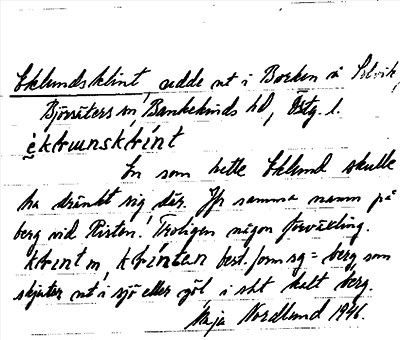 Eklundsklint, udde ut i Borken å Selvik,
Björsäters sn, Bankekinds hd, Östg. l.
En som hette Eklund skulle
ha dränkt sig där. Jfr samma namn på
berg vid Risten. Troligen någon förväxling.
m, best. form sg = berg som
skjuter ut i sjö eller göl i sht kalt berg.
Maja Nordlund 1946.